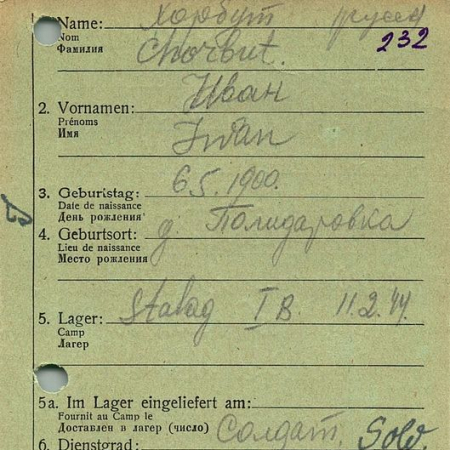 1. Name: Хорбут русск
Nom
Фамилия Chorbut. 232
2. Vornamen: Иван
Prénoms
Имя Iwan
3. Geburtstag: 6 5. 1900.
Date de naissance
День рождения
4. Geburtsort: д. Полидаровка
Lieu de naissance
Место рождения
5. Lager: Stalag I B. 11.2.44.
Camp
Лагерь
5a. Im Lager eingeliefert am:
Fournit au Camp le
Доставлен в лагерь (число)
6. Dienstgrad: Солдат. Sold.